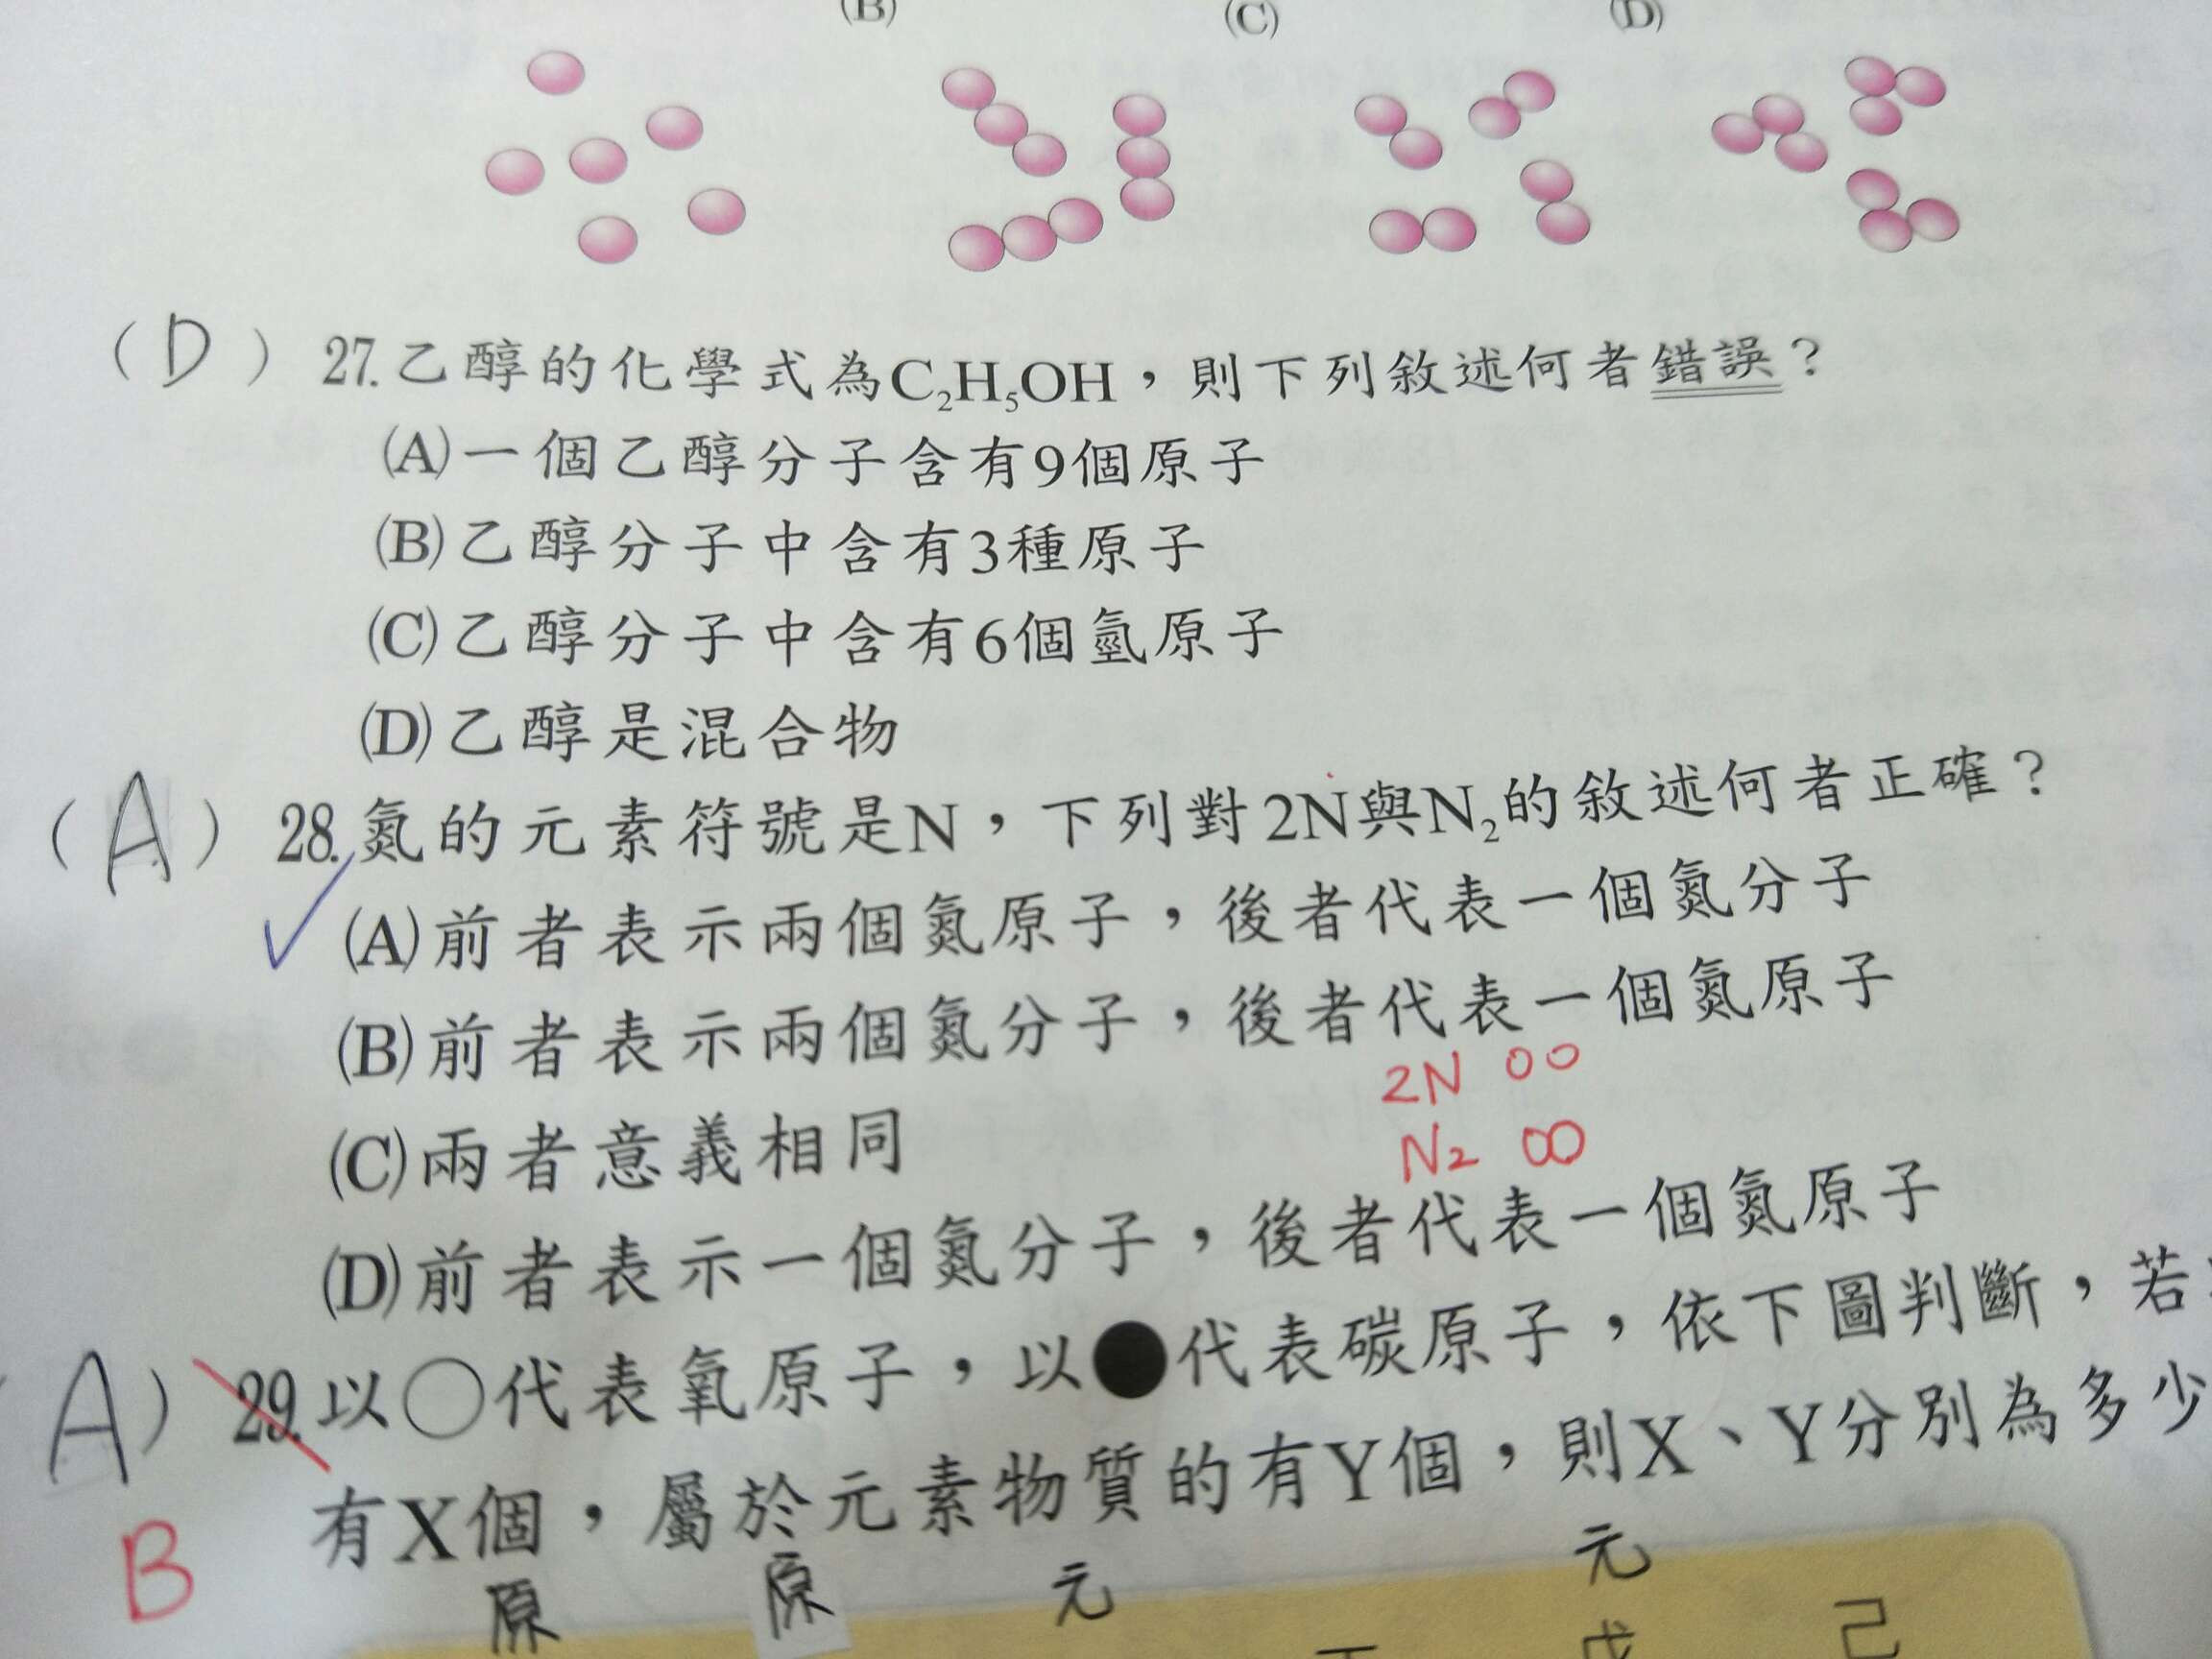 (B) (C) (D)
(D) 27.乙醇的化學式為C₂H₅OH，則下列敘述何者錯誤？
(A)一個乙醇分子含有9個原子
(B)乙醇分子中含有3種原子
(C)乙醇分子中含有6個氫原子
(D)乙醇是混合物
(A) 28.氮的元素符號是N，下列對2N與N₂的敘述何者正確？
(A)前者表示兩個氮原子，後者代表一個氮分子
(B)前者表示兩個氮分子，後者代表一個氮原子
2N
(C)兩者意義相同
N2
(D)前者表示一個氮分子，後者代表一個氮原子
(A) 29.以○代表氧原子，以●代表碳原子，依下圖判斷，若
有X個，屬於元素物質的有Y個，則X、Y分別為多少
B
原 原 元 元
戊 己